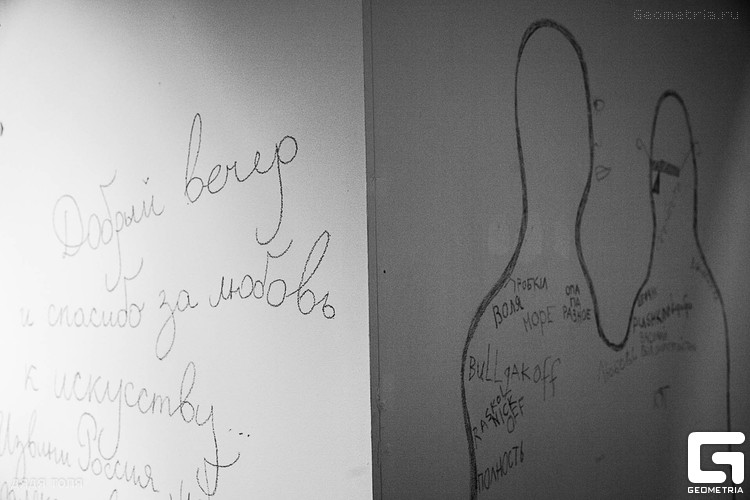 Добрый вечер
и спасибо за любовь
к искусству...
Извини Россия
ПРОБКИ
ВОЛЯ
МОРЕ
ОПА
ПА
РАЗНОЕ
BULLgAKOFF
RASKOL
NICK
OFF
ПОЛНОСТЬ
Geometria.ru
GEOMETRIA